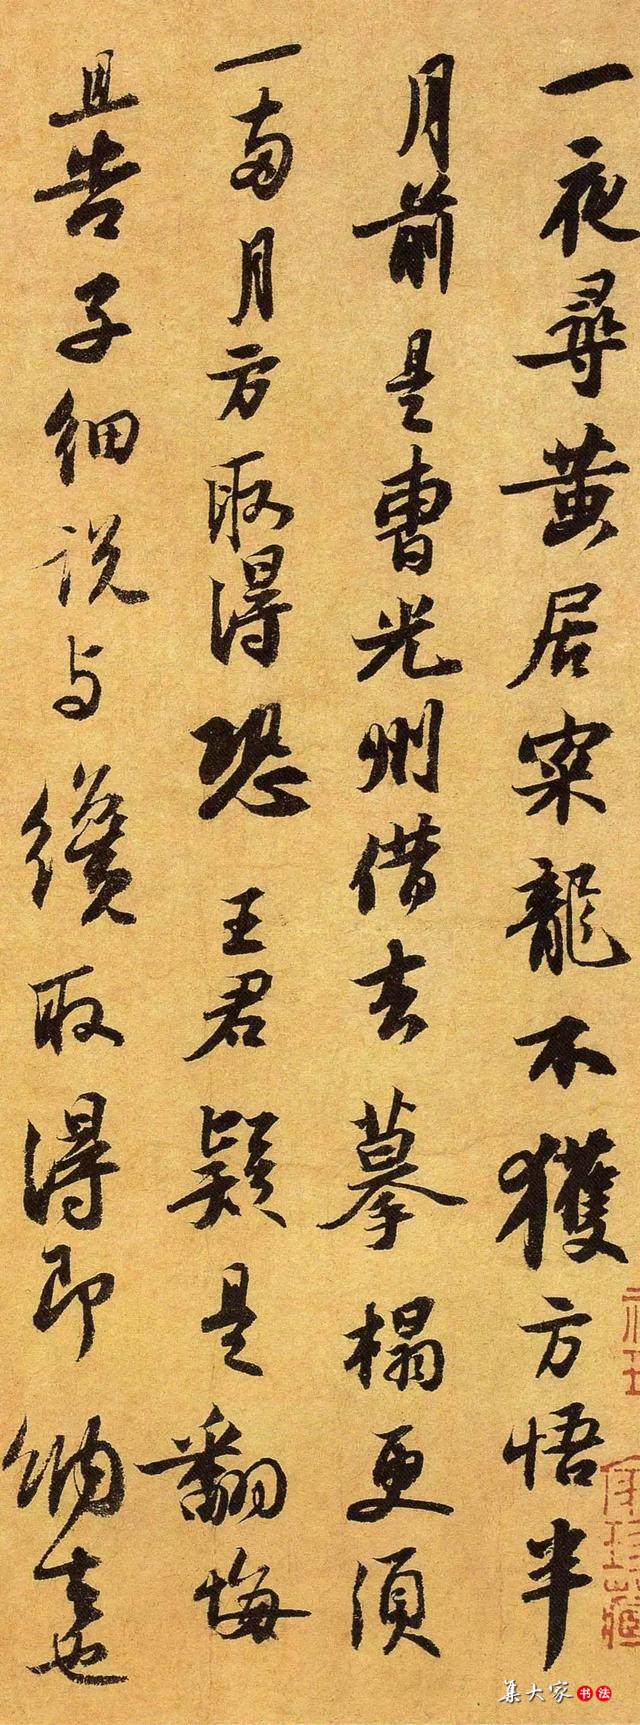 一夜尋黄居寀龍不獲方悟半
月前是曹光州借去摹搨更須
一兩月方取得恐王君疑是翻悔
且告子細說与纔取得即納去也
集大家書法